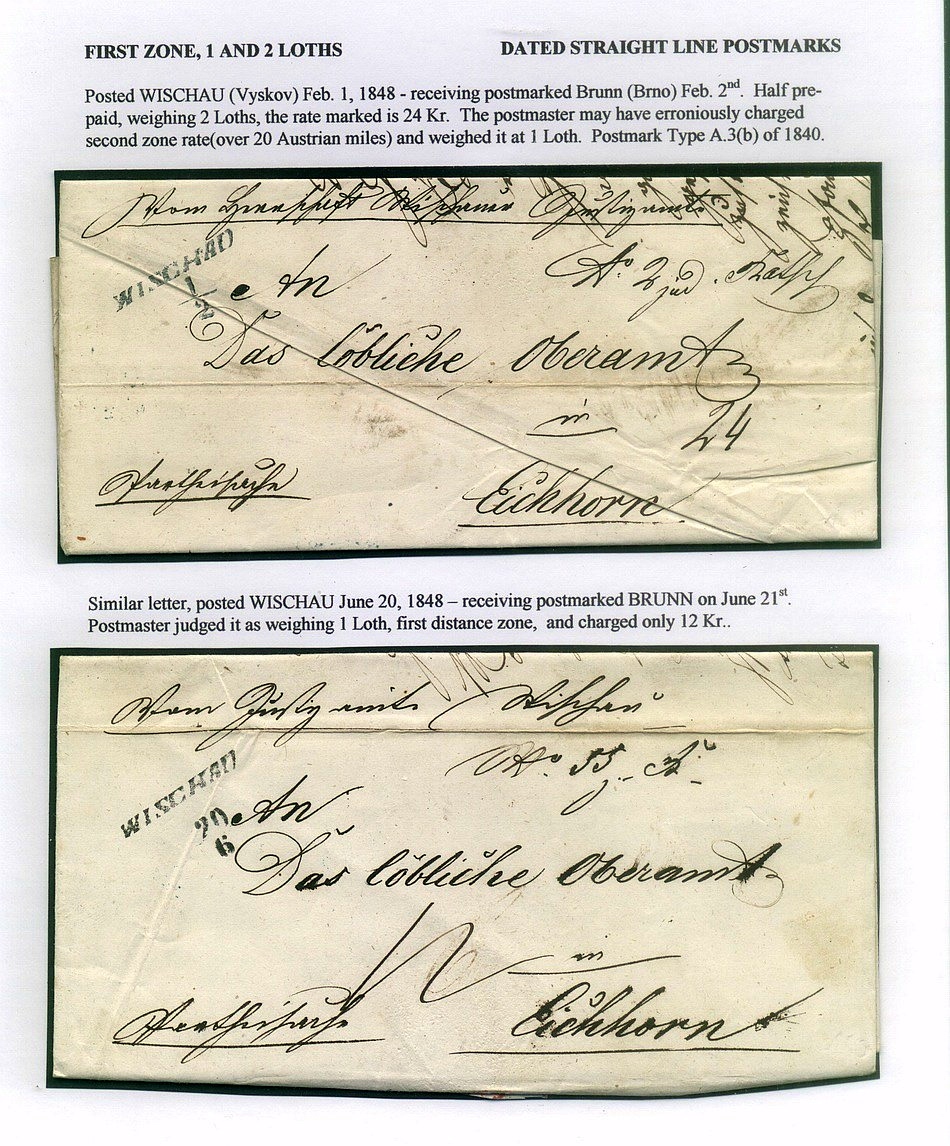 FIRST ZONE, 1 AND 2 LOTHS
DATED STRAIGHT LINE POSTMARKS
Posted WISCHAU (Vyskov) Feb. 1, 1848 - receiving postmarked Brunn (Brno) Feb. 2nd. Half pre-
paid, weighing 2 Loths, the rate marked is 24 Kr. The postmaster may have erroniously charged
second zone rate(over 20 Austrian miles) and weighed it at 1 Loth. Postmark Type A.3(b) of 1840.
Vom Herrschaft Wischauer Justizamte
WISCHAU
1/2
An
No 2 jud.
Das löbliche Oberamt
in
24
Partheisache
Eichhorn
Similar letter, posted WISCHAU June 20, 1848 – receiving postmarked BRUNN on June 21st.
Postmaster judged it as weighing 1 Loth, first distance zone, and charged only 12 Kr..
Vom Justizamte Wischau
No 55
WISCHAU
20
6
An
Das löbliche Oberamt
12
in
Partheisache
Eichhorn